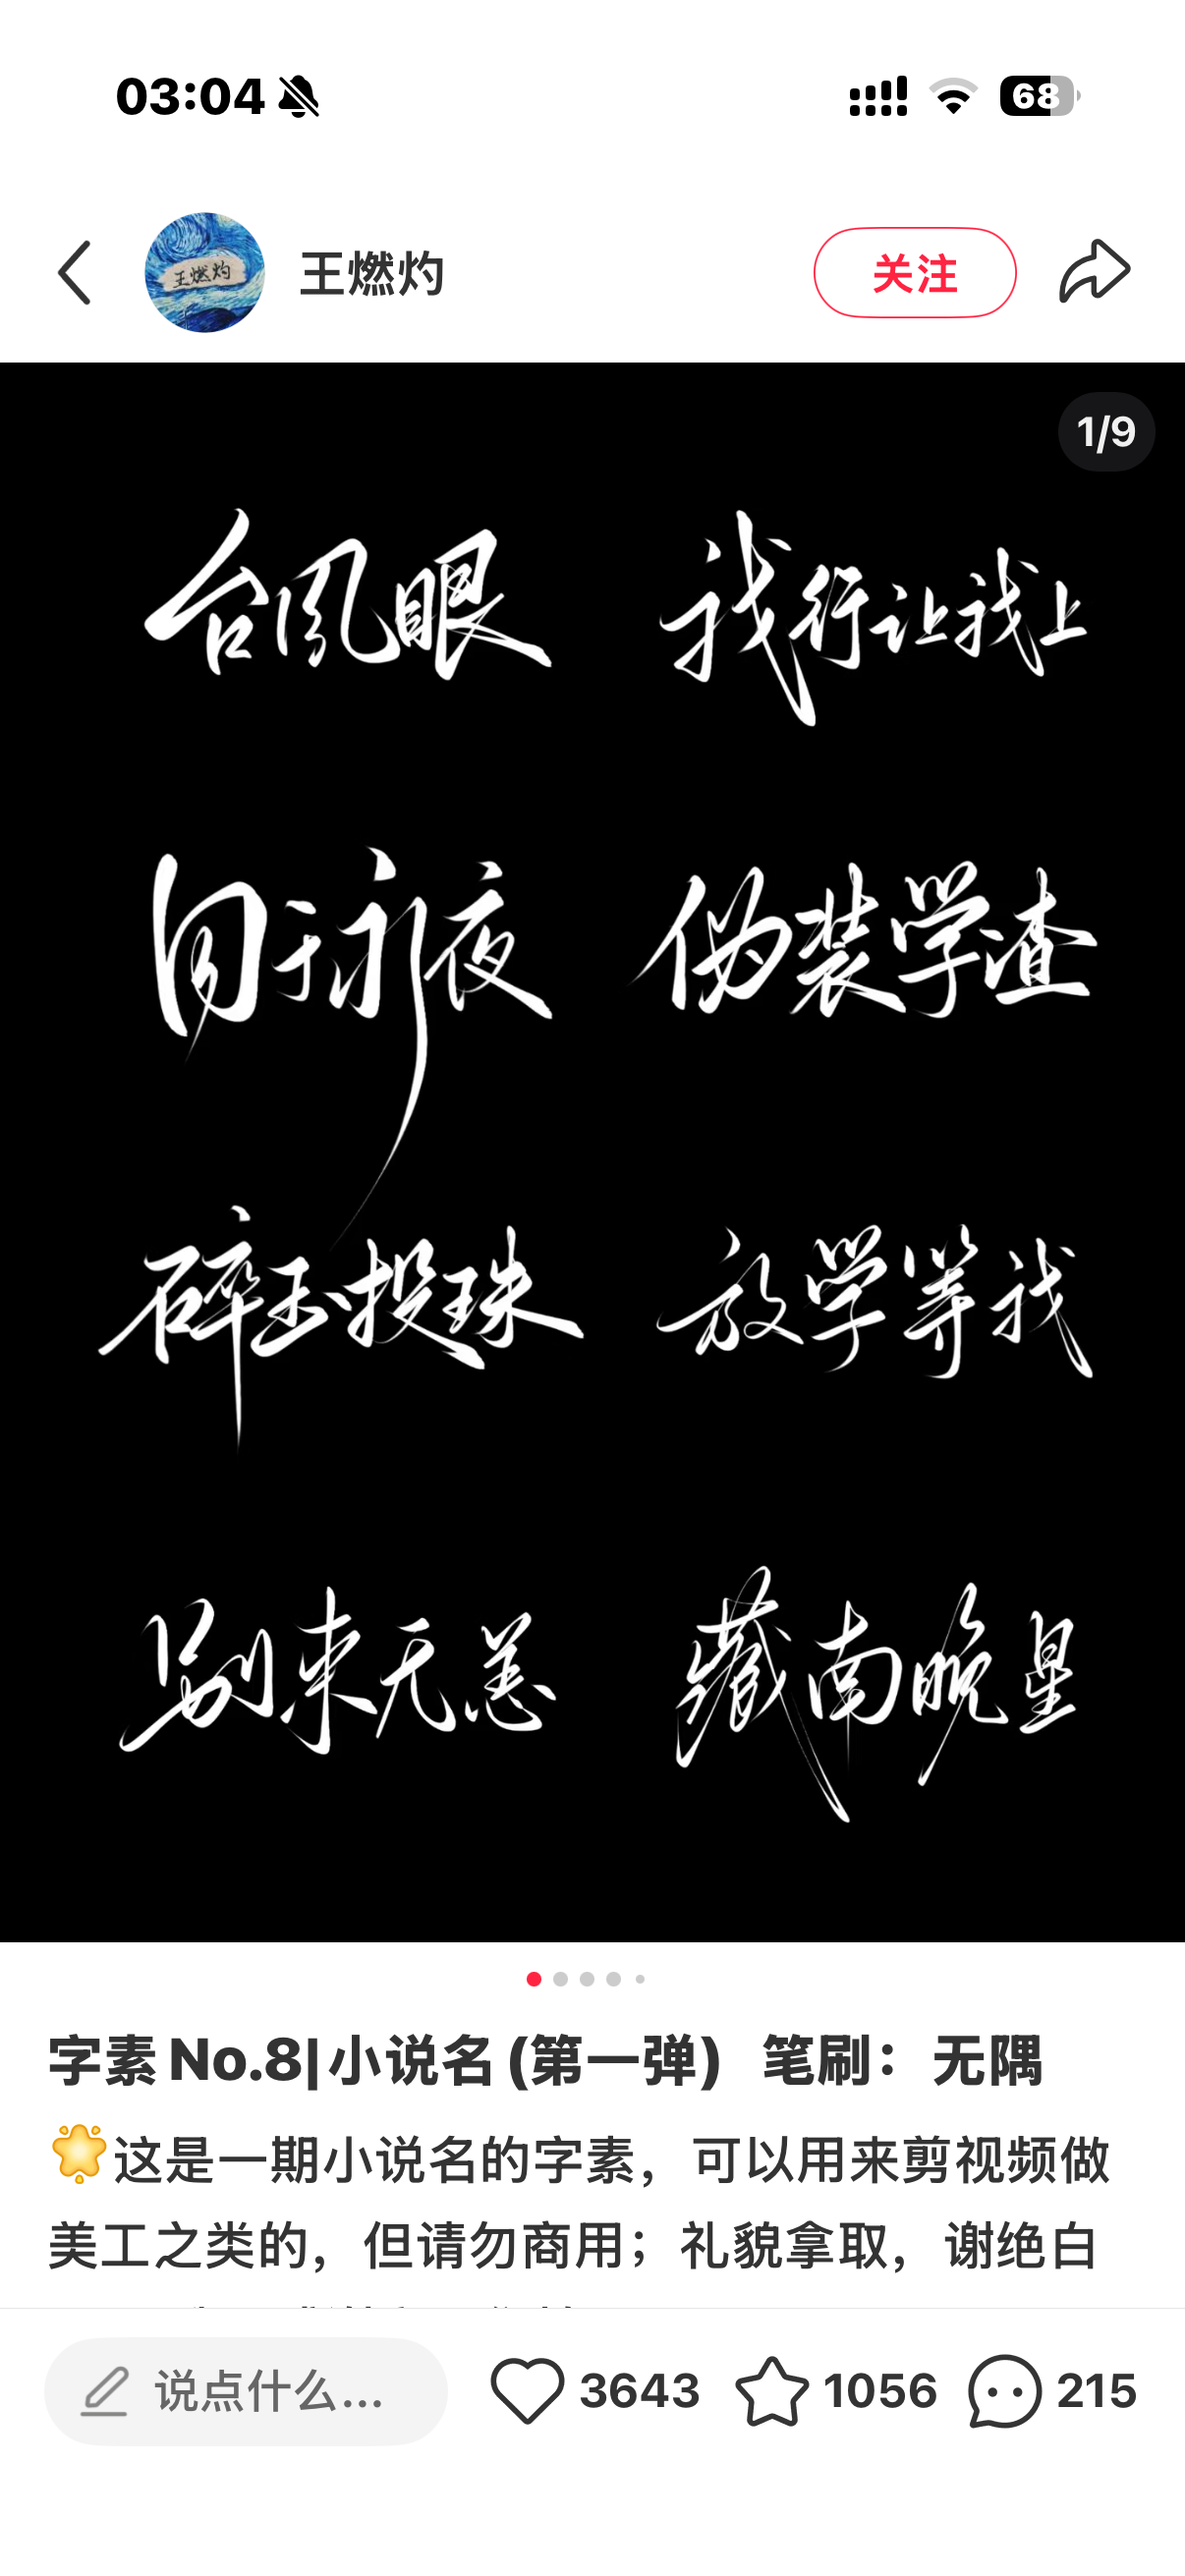 03:04
68
王燃灼
王燃灼
关注
1/9
台风眼
我行让我上
囚于永夜
伪装学渣
碎玉投珠
放学等我
别来无恙
藏南晚星
字素 No.8|小说名 (第一弹) 笔刷：无隅
这是一期小说名的字素，可以用来剪视频做
美工之类的，但请勿商用；礼貌拿取，谢绝白
说点什么...
3643
1056
215